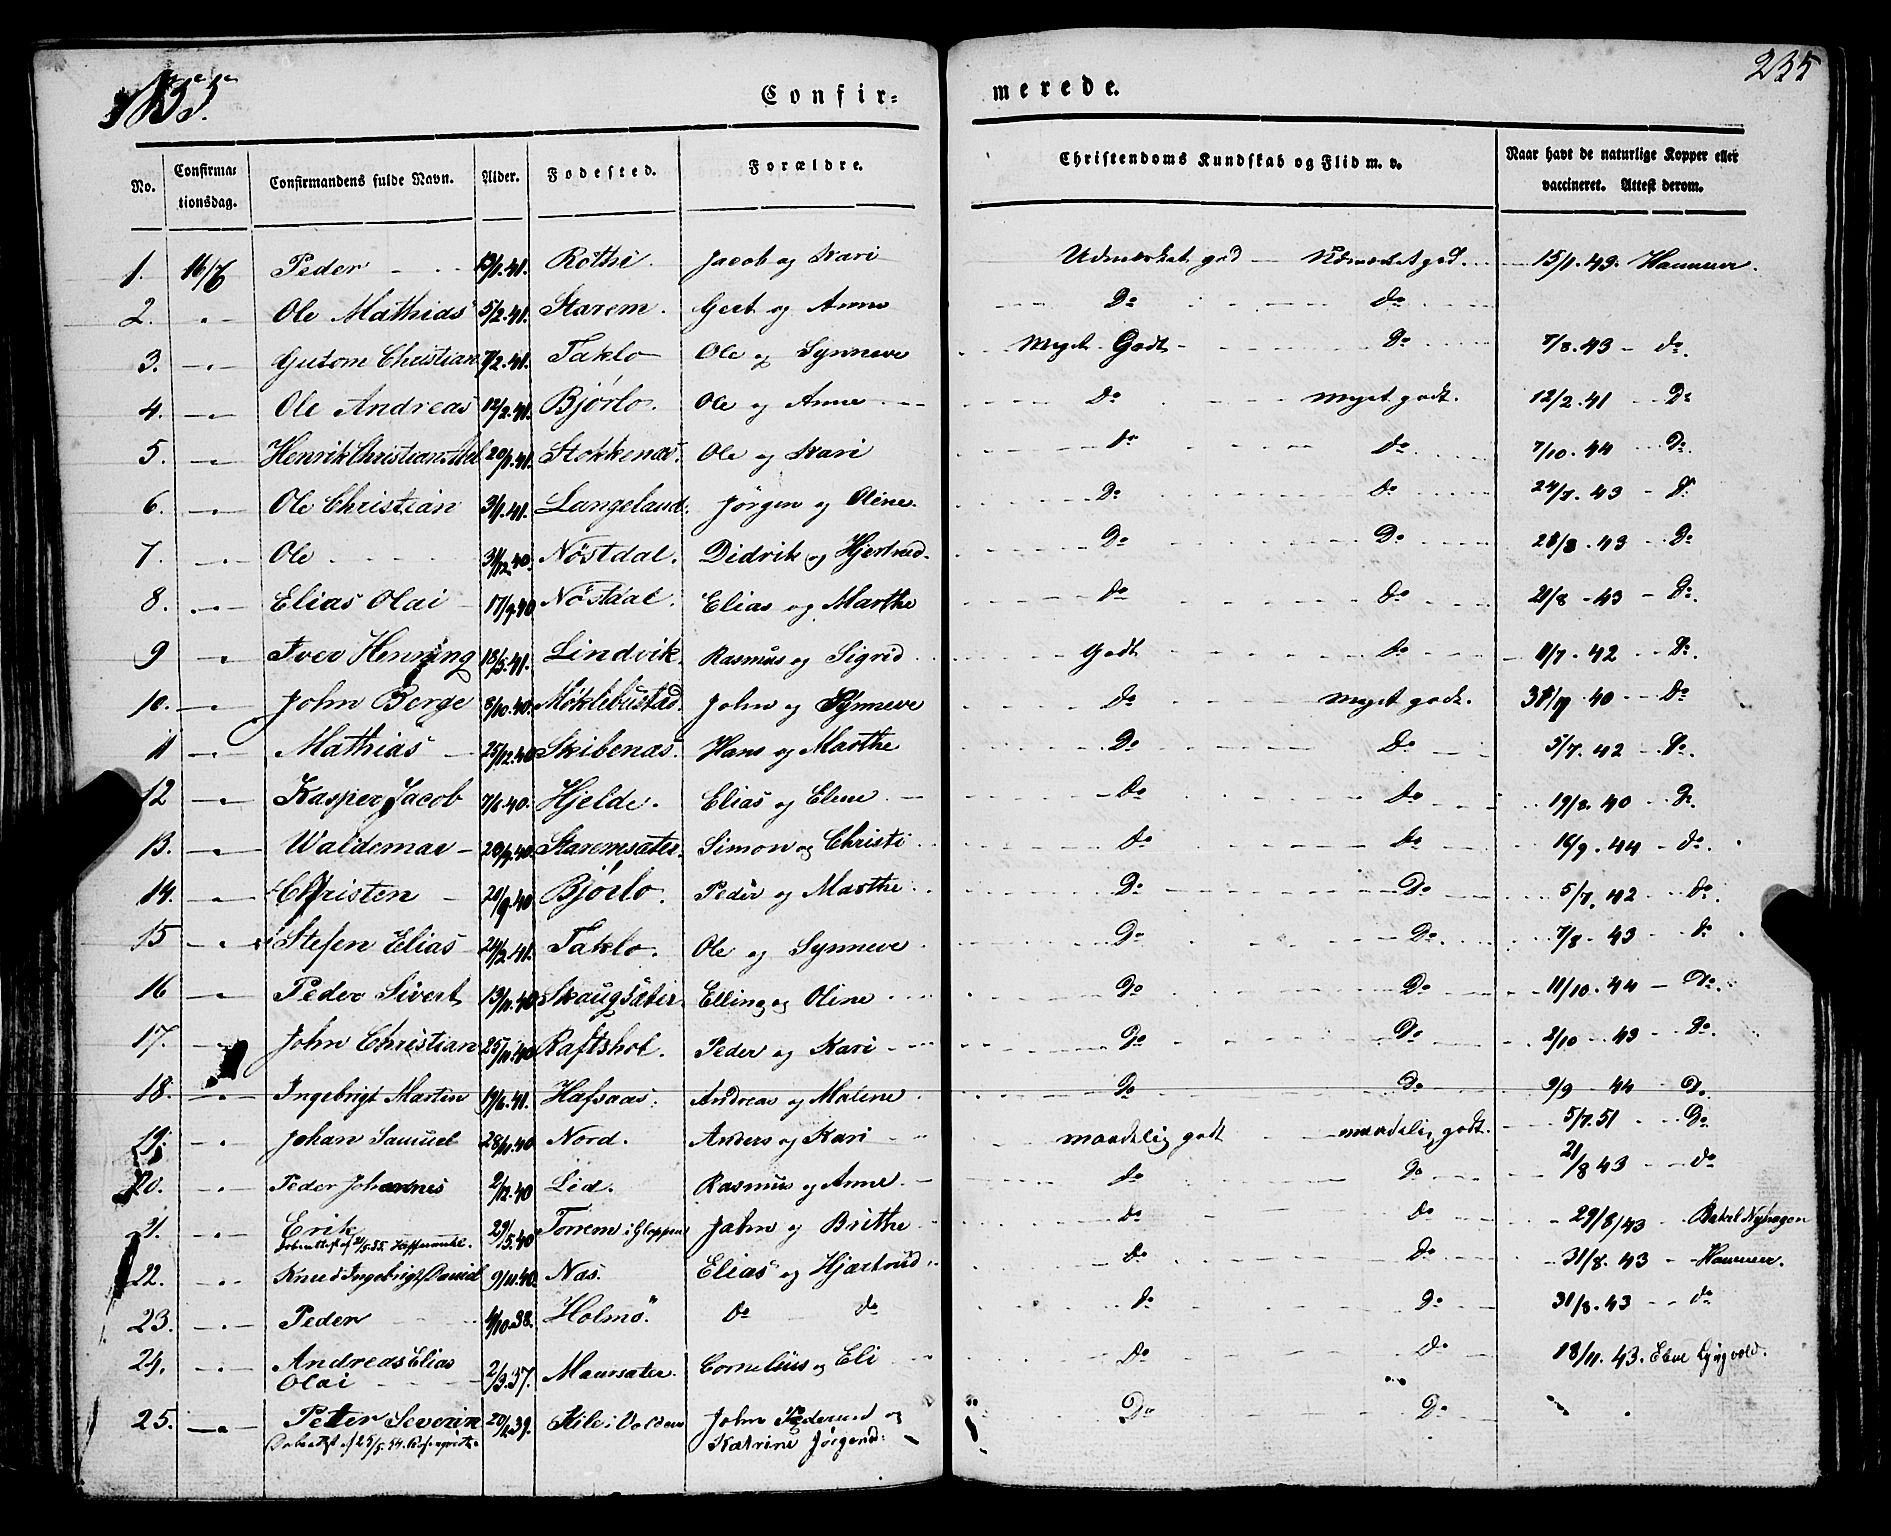 1855.
Confir-
merede.
235
No.
Confirma-
tionsdag.
Confirmandens fulde Navn.
Alder.
Fødested.
Forældre.
Christendoms Kundskab og Flid m. v.
Naar havt de naturlige Kopper eller
vaccineret. Attest derom.
1. 16/6 Peder - - 41. Rothi. Jacob og Kari Udmærket god - Udmærket god. 15/1. 43. Hammer.
2. - Ole Mathias 5/2.41. Starem. Gert og Anne Do Do
3. - Christian 7/2.41. Taklo Ole og Synneve - Meget Godt - Do 7/8.43 - do.
4. - Ole Andreas 12/2.41. Bjørlo. Ole og Anne Do meget godt. 12/2.41 - Do
5. - Henrik Christian 41. Stokkenæs. Ole og Kari Do Do 7/10.44 - Do
6. - Ole Christian 3/1.41. Langeland. Jørgen og Oline. Do Do 24/7.43 - Do
7. - Ole 31/12.40. Nøstdal. Didrik og Hjertrud. Do Do 28/8.43 - Do
8. - Elias Olai 40 Nøstdal. Elias og Marthe Do Do 21/8.43 - Do
9 - Iver Henning 18/5.41. Lindvik. Rasmus og Sigrid Godt Do 11/7.42 - Do
10. - John Berge 8/10.40. Møklebustad. John og Synneve Do meget godt. 40 - Do
11 - Mathias 25/12.40 Skibenæs. Hans og Marthe Do Do 5/7.42 - Do
12 - Kasper Jacob 40. Hjelde. Elias og Elene Do Do 19/8.40 - Do
13. - Waldemar 40. Staremsæter. Simon og Christi Do Do 16/9.44 - do.
14. - Christen 20/9.40 Bjørlo. Peder og Marthe Do Do 5/7.42 - Do
15 - Stefen Elias 24/2.41. Taklo. Ole og Synneve Do Do 7/8.43 - Do
16 - Peder Sivert 13/11.40 Skaugsæter. Elling og Oline Do Do 11/10.44 - Do.
17. - John Christian 25/11.40 Raftshol. Peder og Kari Do Do 2/10.43 - Do
18. - Ingebrigt Marten 41. Hafsaas. Andreas og Malene Do Do 9/9 44 - Do.
19. - Johan Samuel 28/11.40 Nord. Anders og Kari maadelig godt maadelig godt. 5/7.51 - Do
20. - Peder Johannes 2/12.40 Lid. Rasmus og Anne Do Do 21/8 43 - do
21. - Erik 29/5.40 Torrem i Gloppen John og Brithe Do Do 29/8/43
22. - Knud Ingebrigt Daniel 9/11.40. Næs. Elias og Hjærtrud Do Do 31/8.43 - Hammer.
23. - Peder 38. Holmø. Do do Do Do 31/8.43 - do
24. - Andreas Elias 2/3.37. Maursæter. Cornelius og Eli Do Do 18/11.43.
Olai
25. - Petter Severin 39. John og Do Do
Katrine Jørgensd.